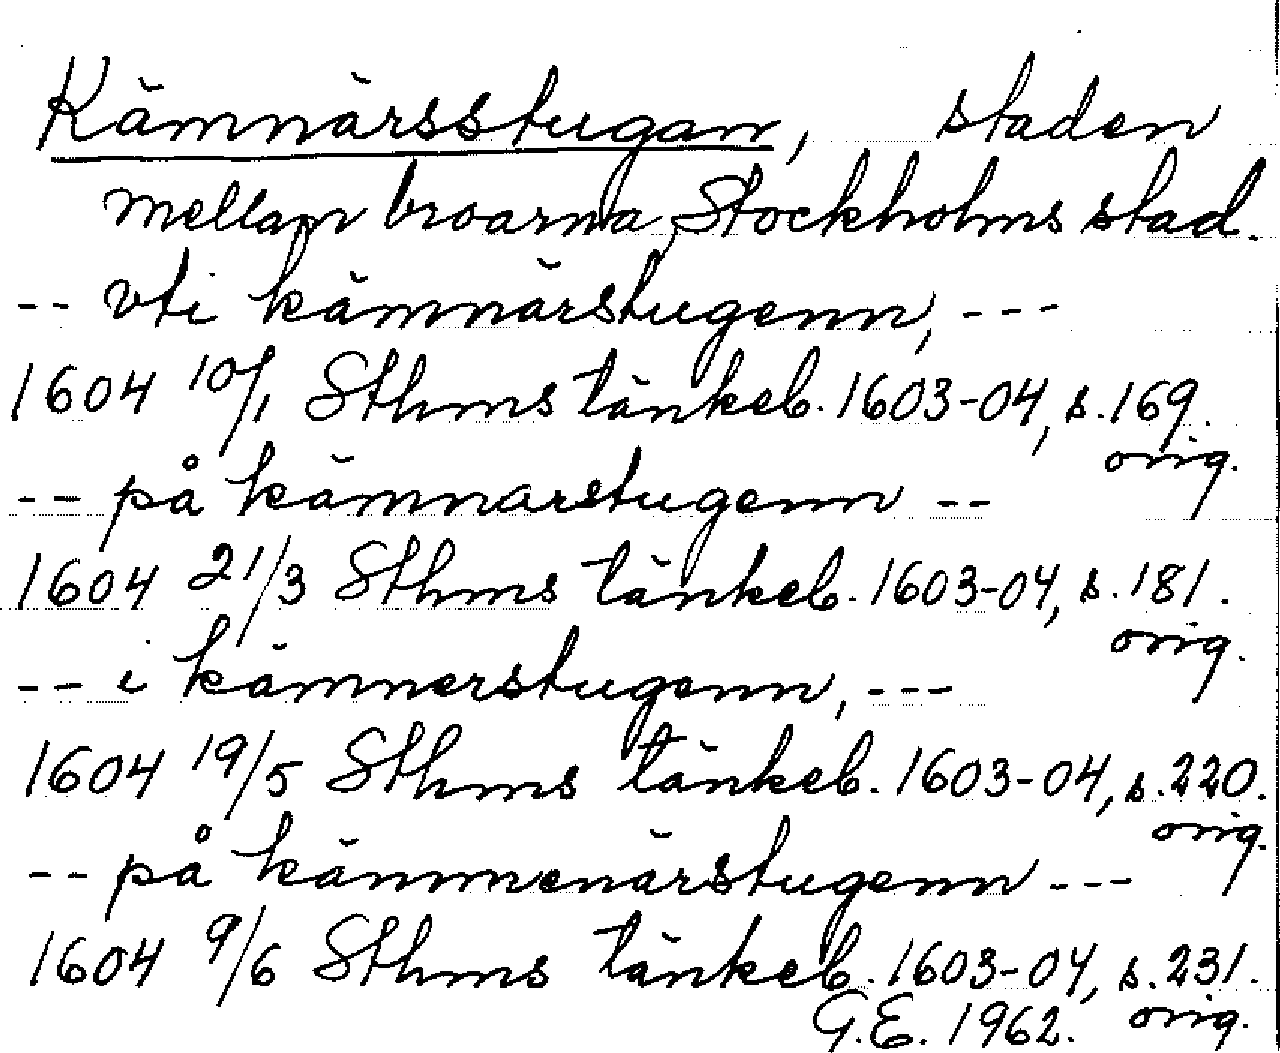 Kämnärsstugan, staden
mellan broarna, Stockholms stad.
-- vti kämnärstugenn, ---
1604 10/1 Sthms tänkeb. 1603-04, s. 169.
orig.
-- på kämnarstugenn --
1604 21/3 Sthms tänkeb. 1603-04, s. 181.
orig.
-- i kämnerstugenn, ---
1604 19/5 Sthms tänkeb. 1603-04, s. 220.
orig.
-- på kämmenärstugenn ---
1604 9/6 Sthms tänkeb. 1603-04, s. 231.
G.E. 1962. orig.